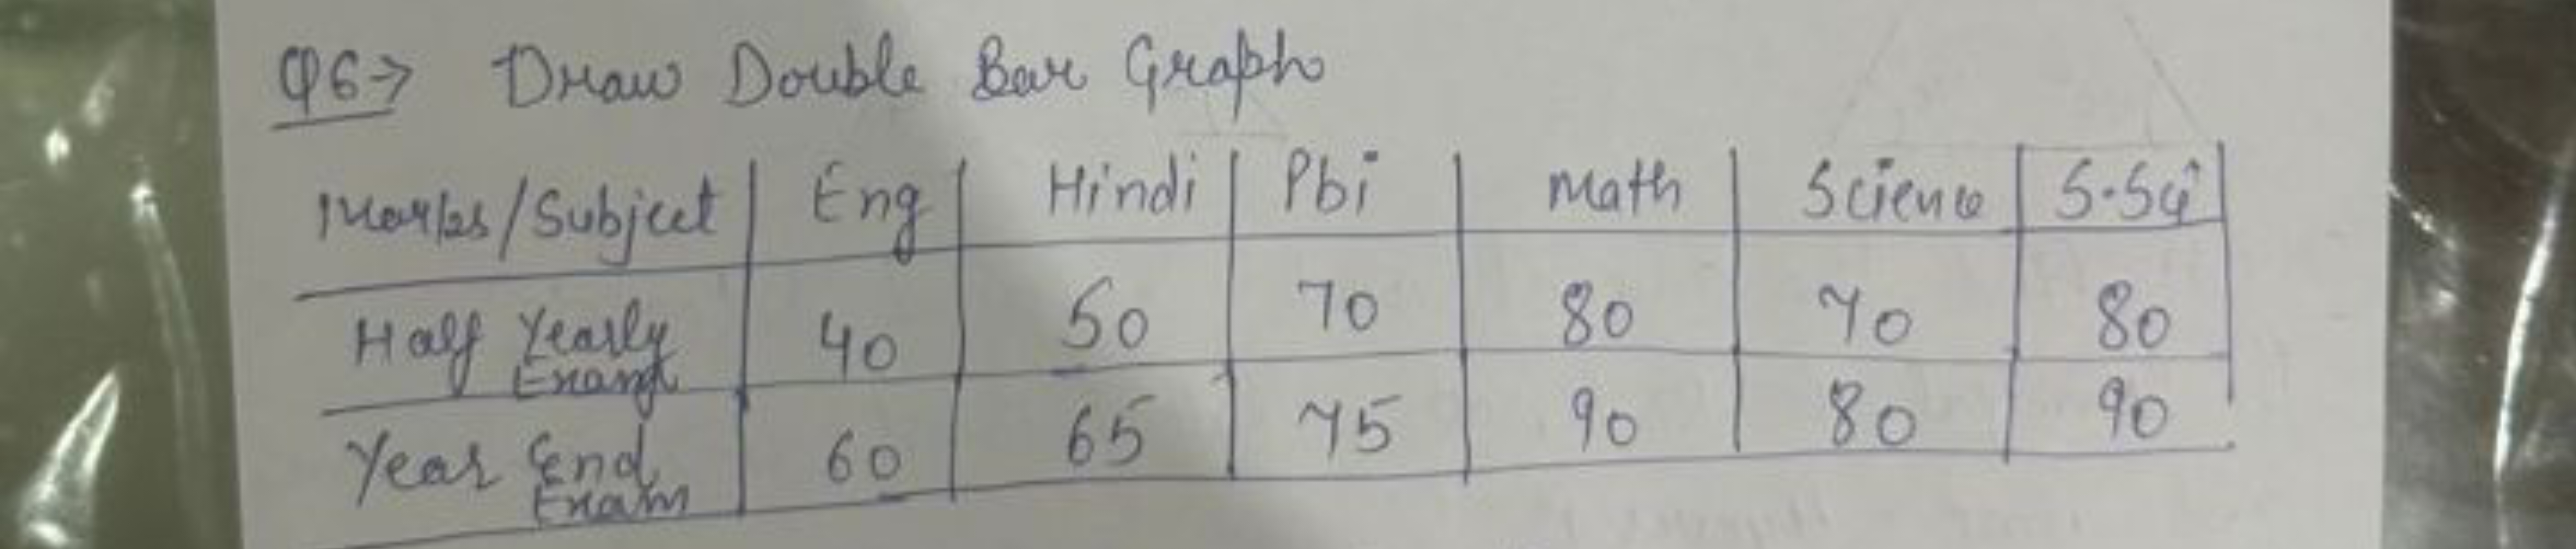 Q6→ Draw Double Bar Graph
Marks/Subject Eng Hindi Pbi Math Science S.Sci
Half Yearly Exam 40 50 70 80 70 80
Year End Exam 60 65 75 90 80 90